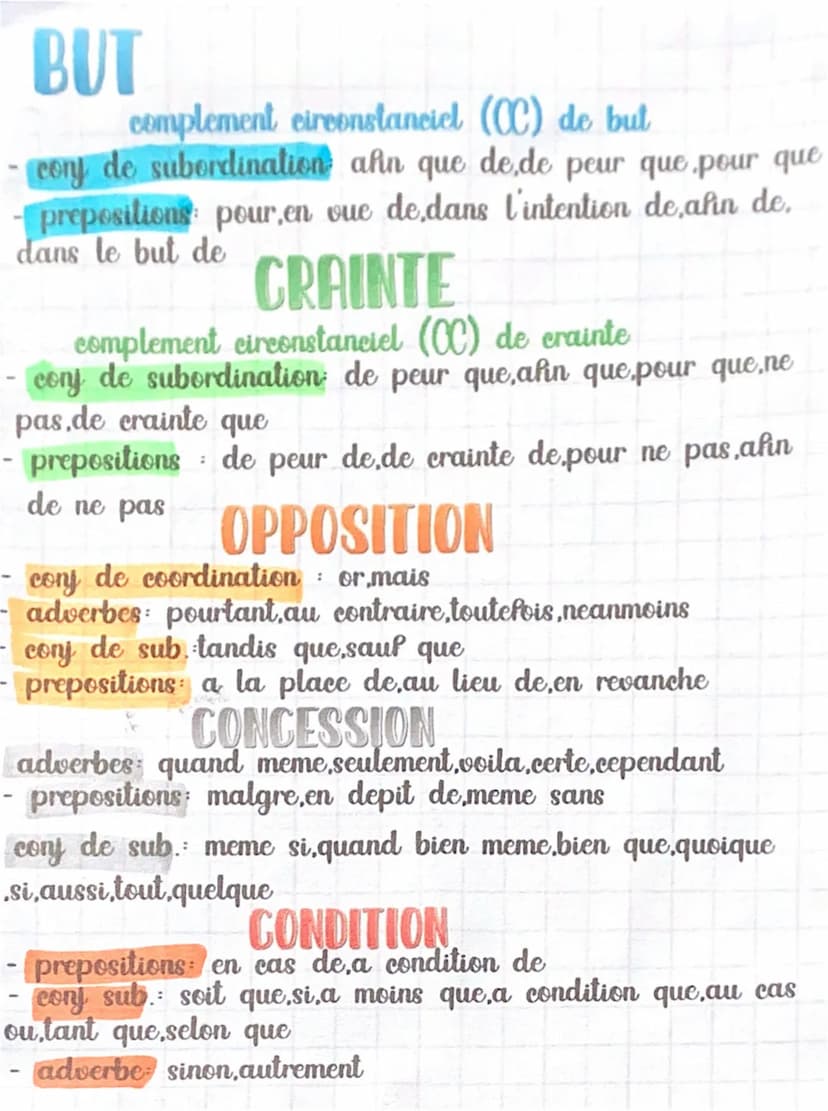 BUT
complement circonstanciel (CC) de but
- conj de subordination: afin que de,de peur que,pour que
- prepositions: pour,en vue de,dans l'intention de,afin de,
dans le but de
CRAINTE
complement circonstanciel (CC) de crainte
- conj de subordination: de peur que,afin que,pour que,ne
pas,de crainte que
- prepositions : de peur de,de crainte de,pour ne pas,afin
de ne pas
OPPOSITION
- conj de coordination : or,mais
- adverbes: pourtant,au contraire,toutefois,neanmoins
- conj de sub.:tandis que,sauf que
- prepositions: a la place de,au lieu de,en revanche
CONCESSION
adverbes: quand meme,seulement,voila,certe,cependant
- prepositions: malgre,en depit de,meme sans
conj de sub.: meme si,quand bien meme,bien que,quoique
,si,aussi,tout,quelque
CONDITION
- prepositions: en cas de,a condition de
- conj sub.: soit que,si,a moins que,a condition que,au cas
ou,tant que,selon que
- adverbe: sinon,autrement